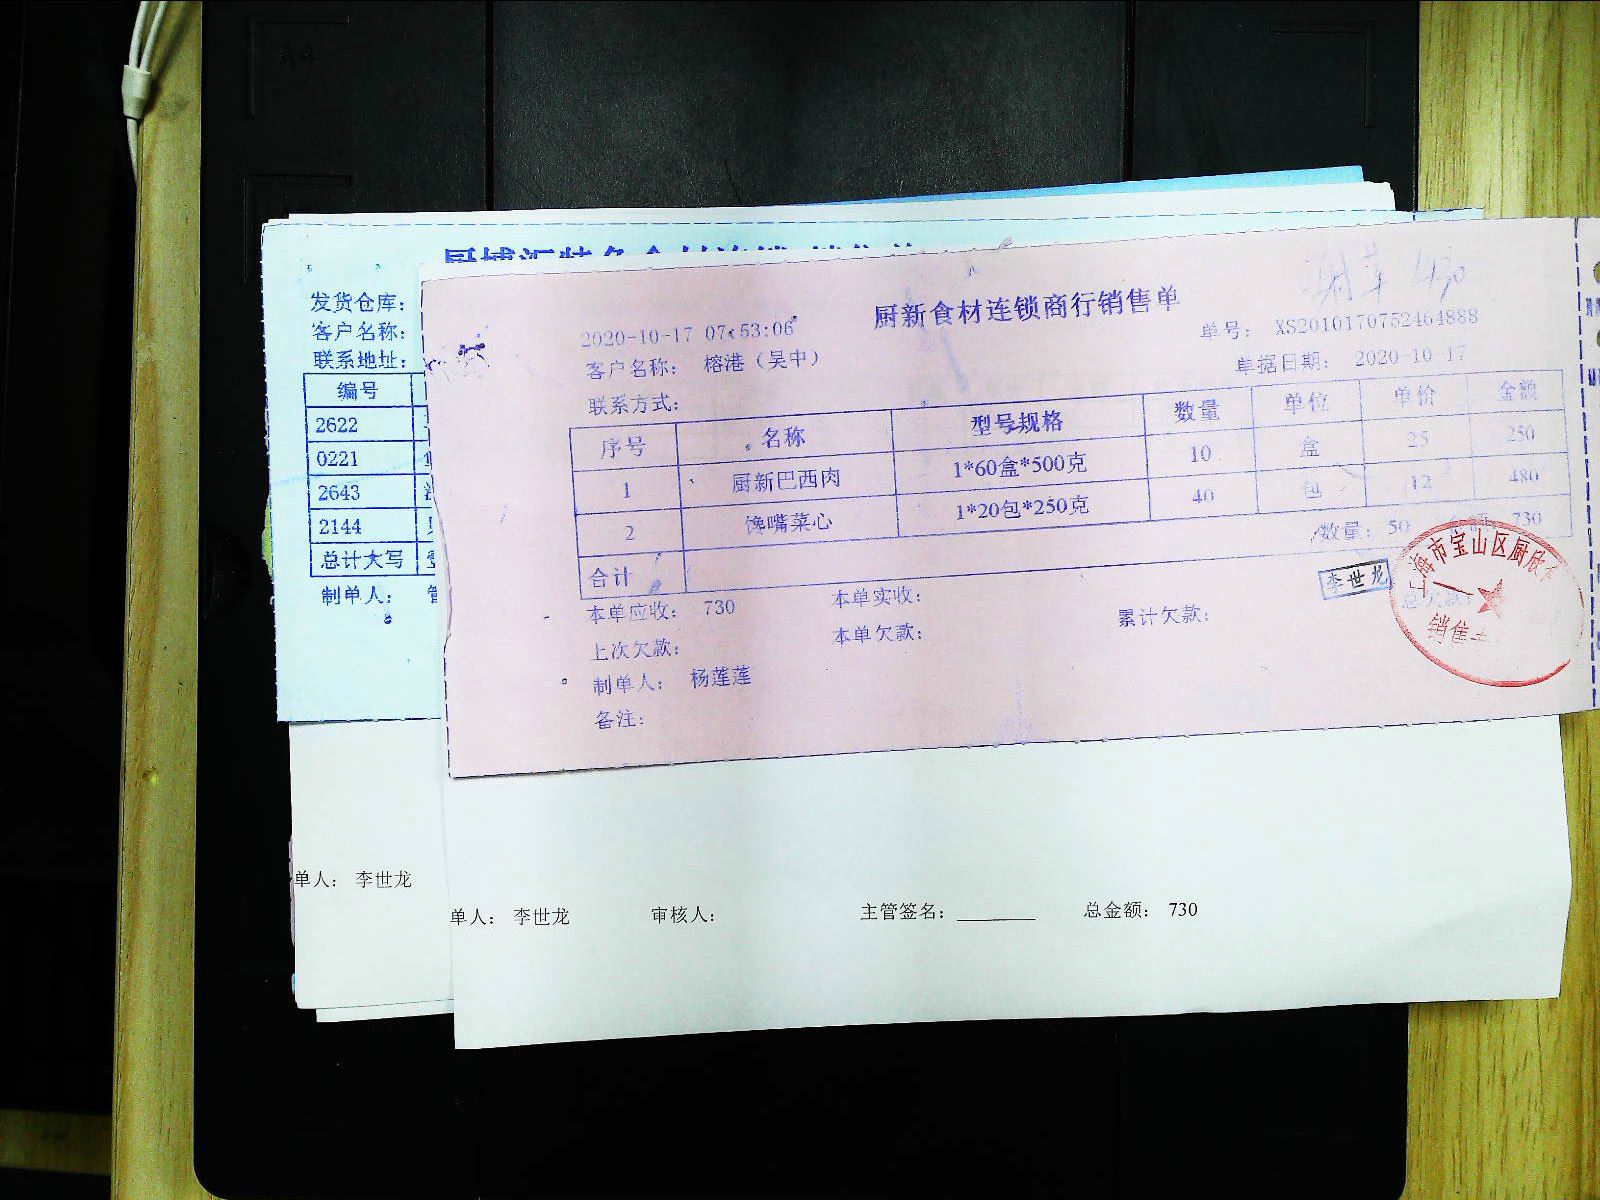 发货仓库：
客户名称：
联系地址：
编号
2622
0221
2643
2144
总计大写
制单人：
厨新食材连锁商行销售单
2020-10-17 07:53:06
单号： XS20101707524648​88
客户名称： 榕港（吴中）
单据日期： 2020-10-17
联系方式：
序号 名称 型号规格 数量 单位 单价 金额
1 厨新巴西肉 1*60盒*500克 10 盒 25 250
2 馋嘴菜心 1*20包*250克 40 包 12 480
合计 数量： 50 730
李世龙
本单应收： 730 本单实收：
上次欠款： 本单欠款： 累计欠款：
制单人： 杨莲莲
备注：
海市宝山区厨欣
销售
单人： 李世龙
单人： 李世龙 审核人： 主管签名：________ 总金额： 730